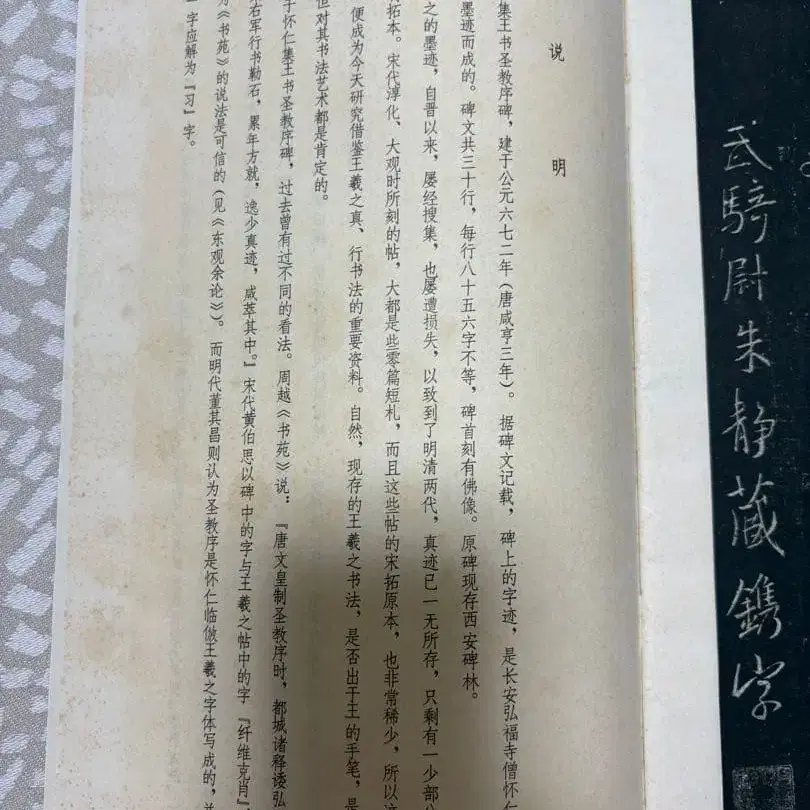 武騎尉朱静藏鐫字
说明
集王书圣教序碑，建于公元六七二年（唐咸亨三年）。据碑文记载，碑上的字迹，是长安弘福寺僧怀仁
墨迹而成的。碑文共三十行，每行八十五六字不等，碑首刻有佛像。原碑现存西安碑林。
之的墨迹，自晋以来，屡经搜集，也屡遭损失，以致到了明清两代，真迹已一无所存，只剩有一少部
拓本。宋代淳化、大观时所刻的帖，大都是些零篇短札，而且这些帖的宋拓原本，也非常稀少，所以
便成为今天研究借鉴王羲之真、行书法的重要资料。自然，现存的王羲之书法，是否出于王的手笔，是
但对其书法艺术都是肯定的。
于怀仁集王书圣教序碑，过去曾有过不同的看法。周越《书苑》说：『唐文皇制圣教序时，都城诸释诿弘
右军行书勒石，累年方就，逸少真迹，咸萃其中。』宋代黄伯思以碑中的字与王羲之帖中的字『纤维克肖』
为《书苑》的说法是可信的（见《东观余论》）。而明代董其昌则认为圣教序是怀仁临倣王羲之字体写成的，
字应解为『习』字。